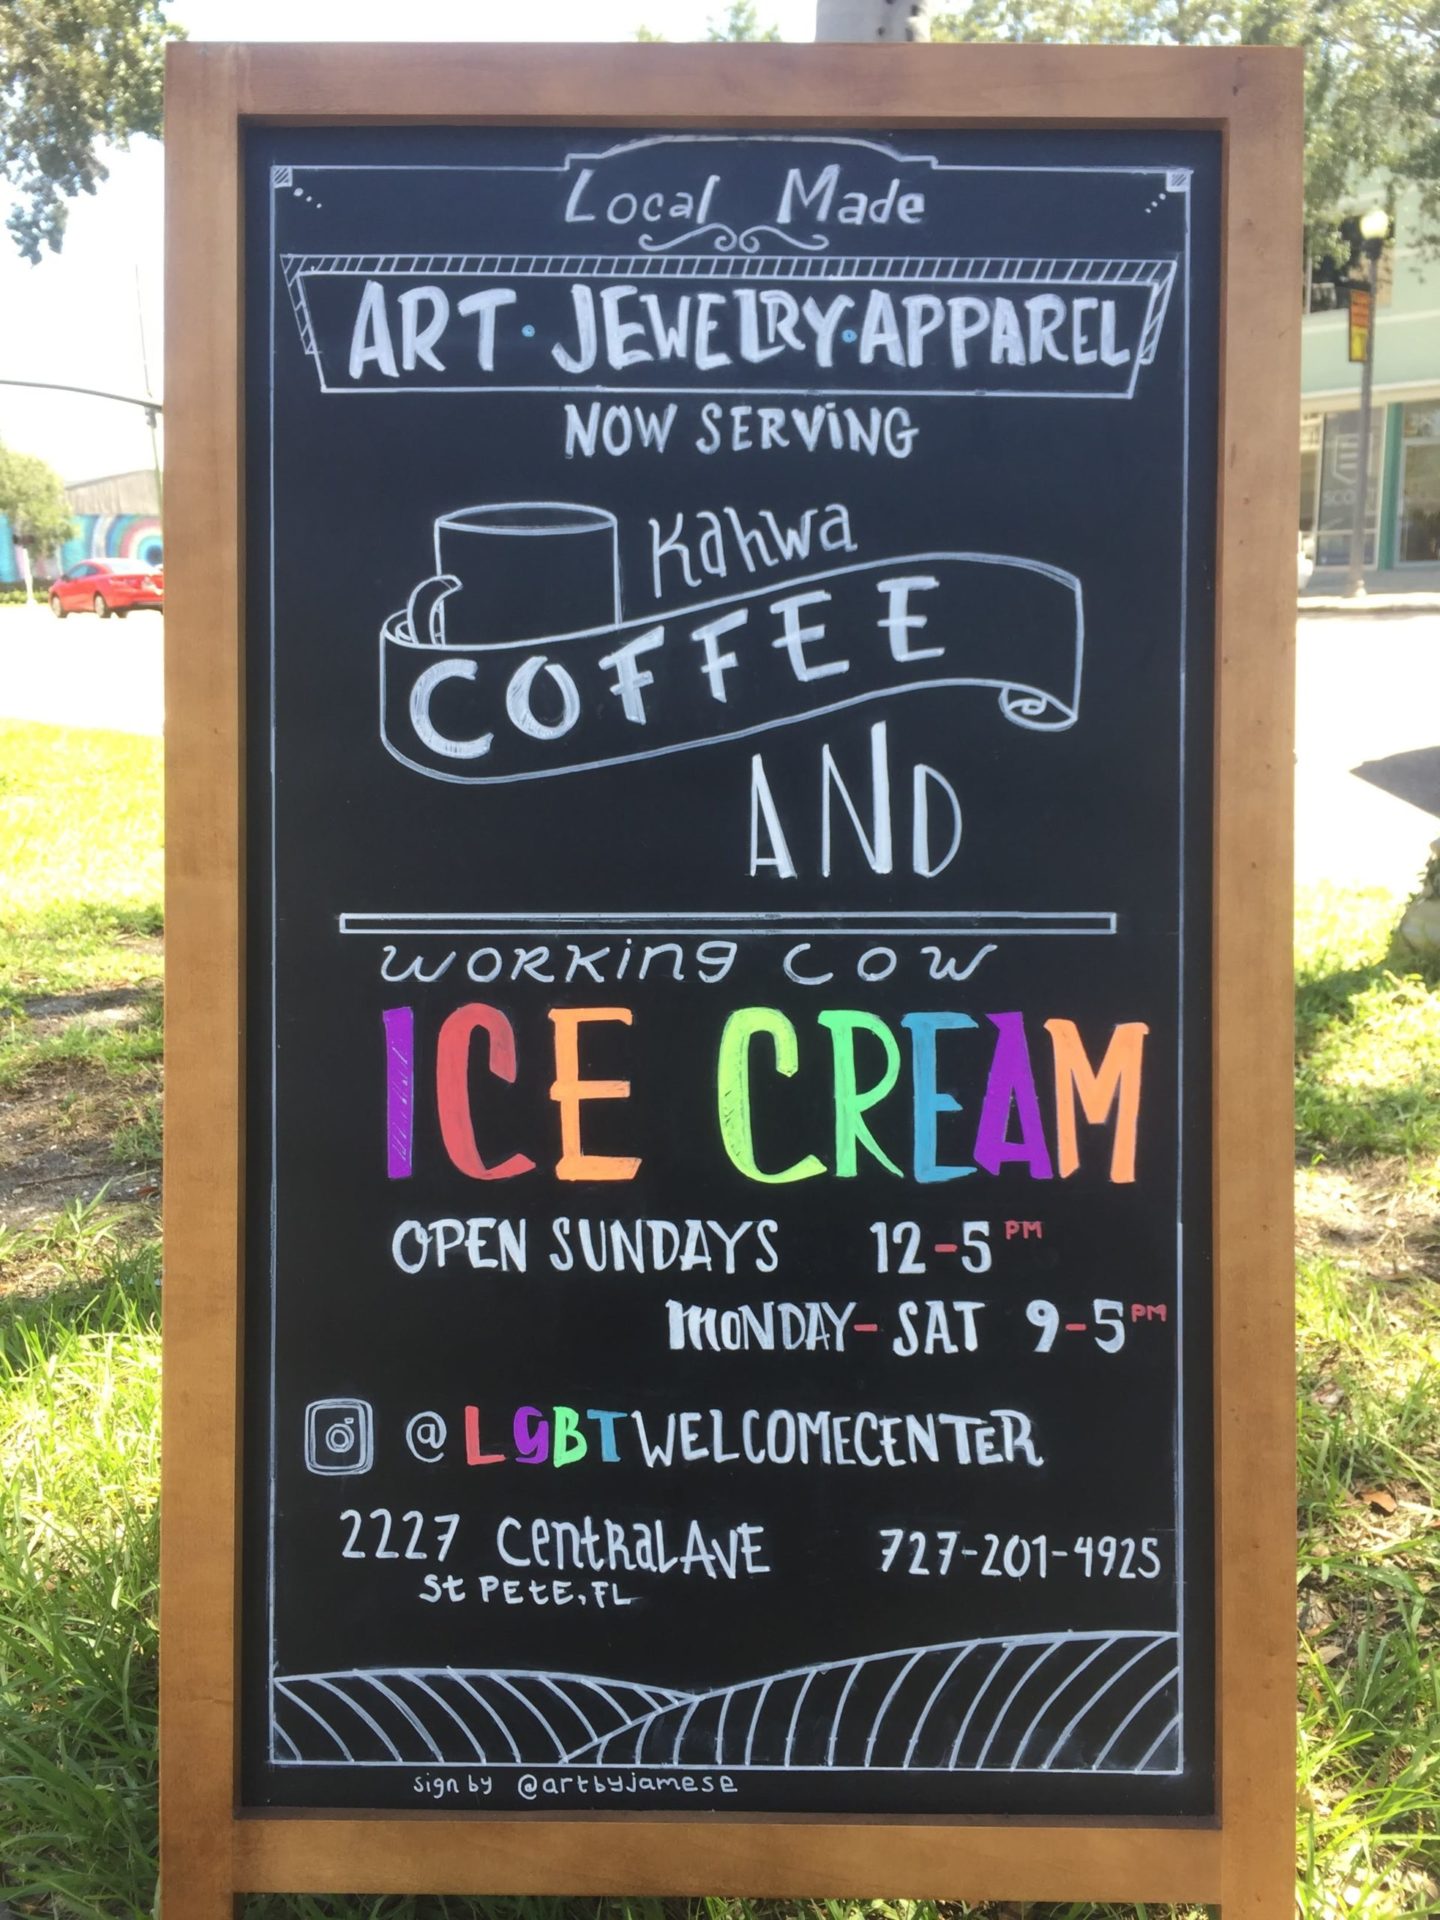 Local Made
ART · JEWELRY · APPAREL
NOW SERVING
Kahwa
COFFEE
AND
WORKING COW
ICE CREAM
OPEN SUNDAYS 12-5 PM
MONDAY-SAT 9-5 PM
@LGBTWELCOMECENTER
2227 CentRaL AVE 727-201-4925
St PEtE, FL
sign by @artbyjamese